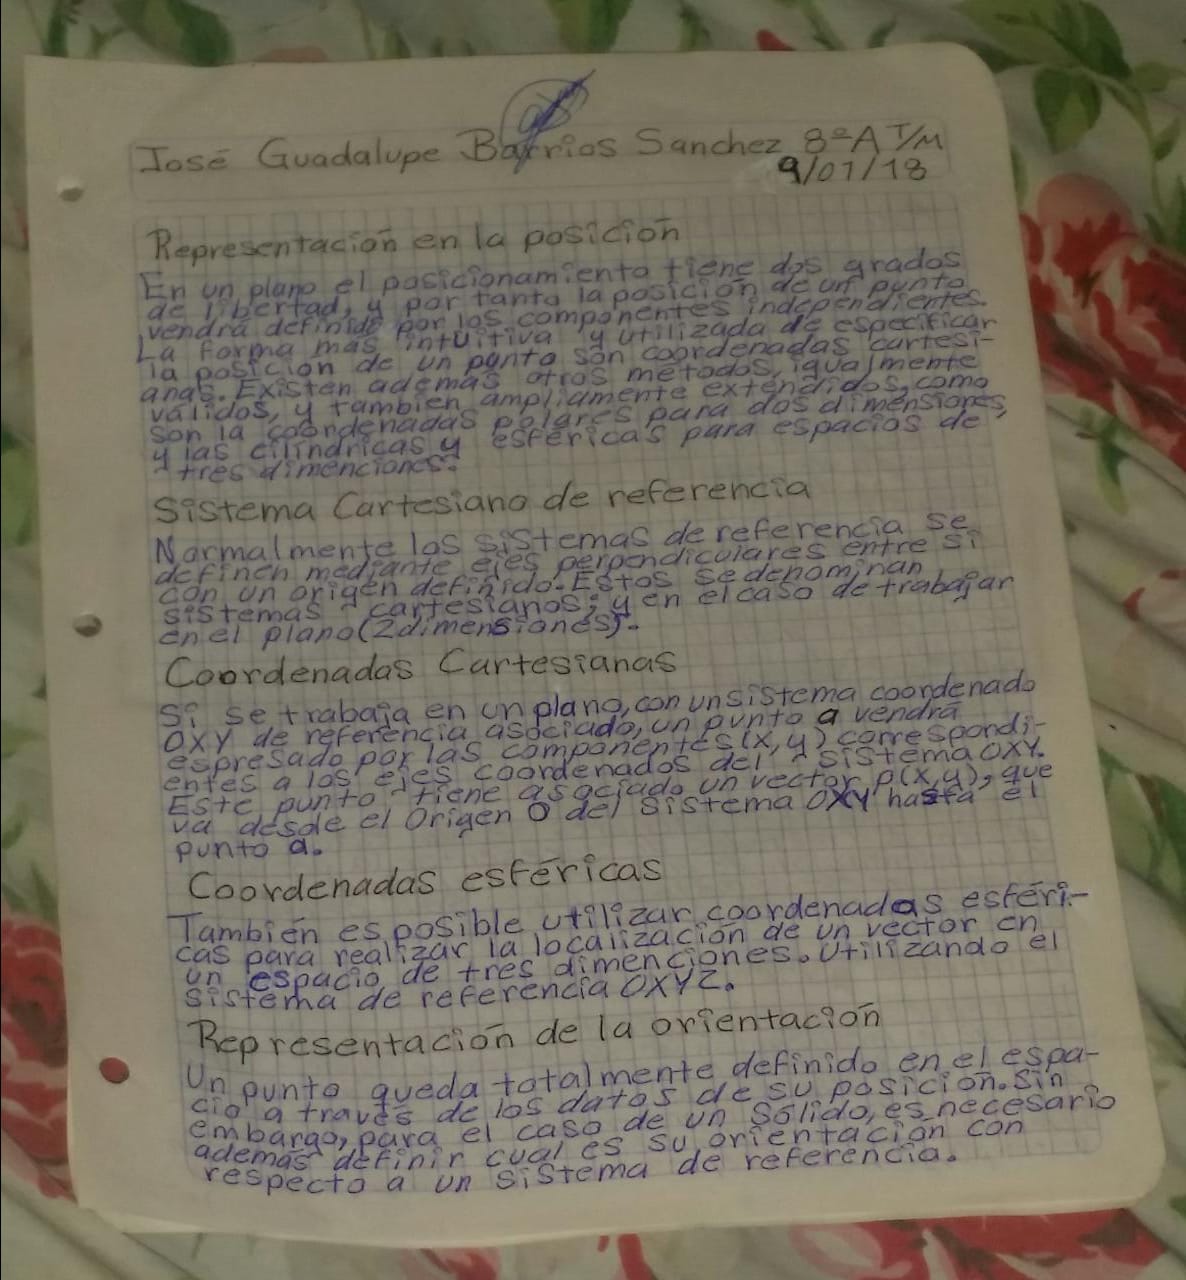 José Guadalupe Barrios Sanchez 8ºA T/M
9/01/18
Representación en la posición
En un plano el posicionamiento tiene dos grados
de libertad, y por tanto la posición de un punto
vendrá definido por los componentes independientes.
La forma más intuitiva y utilizada de especificar
la posición de un punto son coordenadas cartesi-
anas. Existen además otros métodos, igualmente
validos, y tambien ampliamente extendidos, como
son la coordenadas polares para dos dimensiones,
y las cilíndricas y esféricas para espacios de
tres dimenciones.
Sistema Cartesiano de referencia
Normalmente los sistemas de referencia se
definen mediante ejes perpendiculares entre si
con un origen definido. Estos se denominan
sistemas cartesianos; y en el caso de trabajar
en el plano (2 dimensiones).
Coordenadas Cartesianas
Si se trabaja en un plano, con un sistema coordenado
OXY de referencia asociado, un punto a vendrá
espresado por las componentes (x, y) correspondi-
entes a los ejes coordenados del sistema OXY.
Este punto tiene asociado un vector p(x,y), que
va desde el origen O del sistema OXY hasta el
punto a.
Coordenadas esféricas
También es posible utilizar coordenadas esféri-
cas para realizar la localización de un vector en
un espacio de tres dimenciones. Utilizando el
sistema de referencia OXYZ.
Representación de la orientación
Un punto queda totalmente definido en el espa-
cio a través de los datos de su posición. Sin
embargo, para el caso de un sólido, es necesario
además definir cual es su orientación con
respecto a un sistema de referencia.